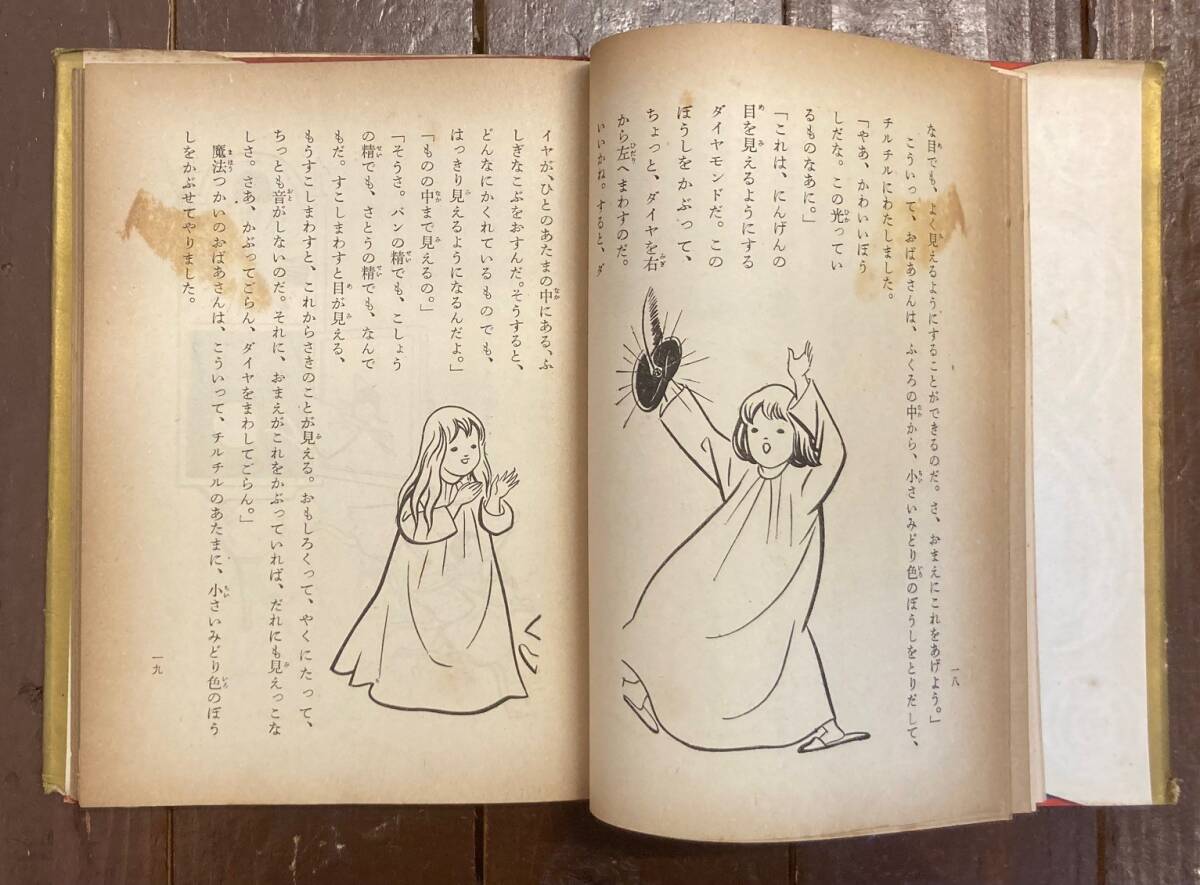 な目でも、よく見えるようにすることができるのだ。さ、おまえにこれをあげよう。」
こういって、おばあさんは、ふくろの中から、小さいみどり色のぼうしをとりだして、
チルチルにわたしました。
「やあ、かわいいぼう
しだな。この光ってい
るものなあに。」
「これは、にんげんの
目を見えるようにする
ダイヤモンドだ。この
ぼうしをかぶって、
ちょっと、ダイヤを右
から左へまわすのだ。
いいかね。すると、ダ
一八
イヤが、ひとのあたまの中にある、ふ
しぎなこぶをおすんだ。そうすると、
どんなにかくれているものでも、
はっきり見えるようになるんだよ。」
「ものの中まで見えるの。」
「そうさ。パンの精でも、こしょう
の精でも、さとうの精でも、なんで
もだ。すこしまわすと目が見える、
もうすこしまわすと、これからさきのことが見える。おもしろくって、やくにたって、
ちっとも音がしないのだ。それに、おまえがこれをかぶっていれば、だれにも見えっこな
しさ。さあ、かぶってごらん、ダイヤをまわしてごらん。」
魔法つかいのおばあさんは、こういって、チルチルのあたまに、小さいみどり色のぼう
しをかぶせてやりました。
一九